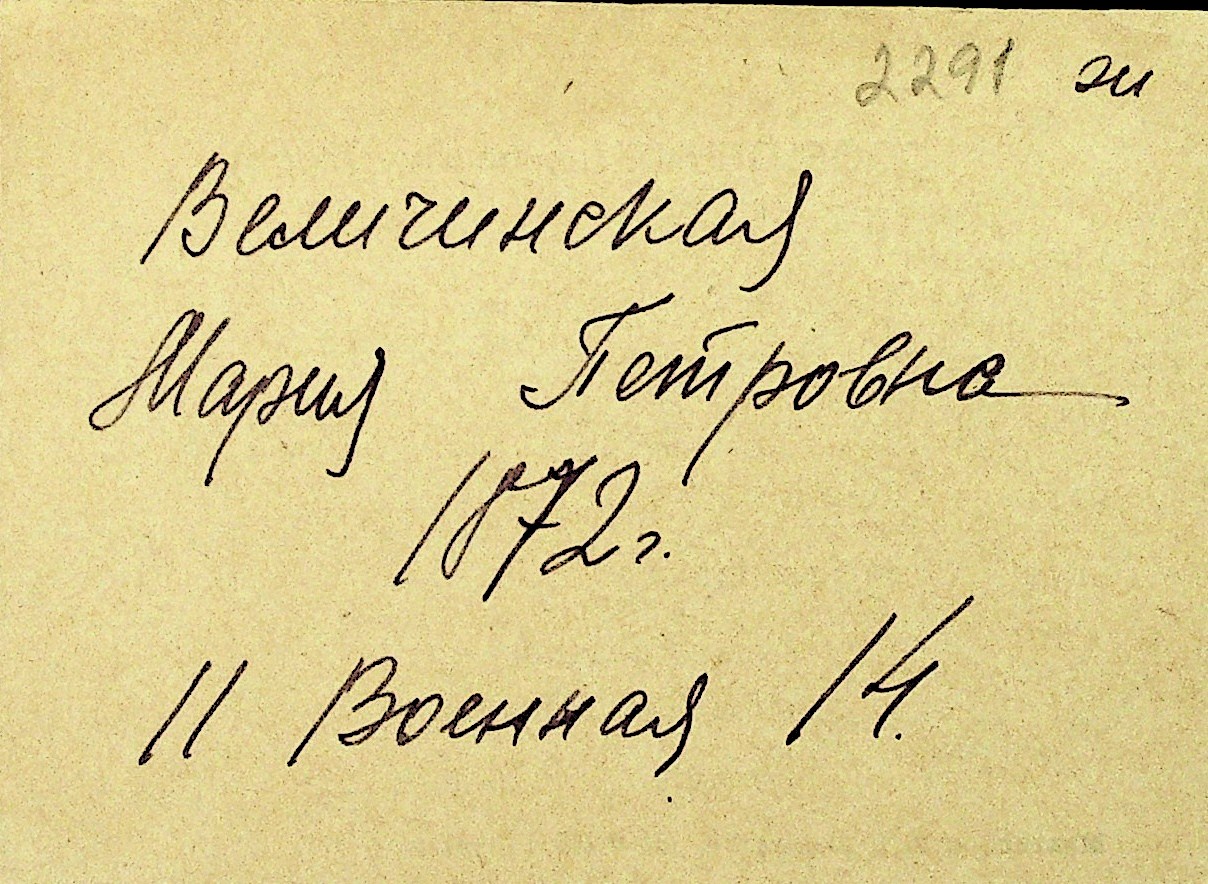 2291 эи
Величинская
Мария Петровна
1872г.
11 Военная 14.